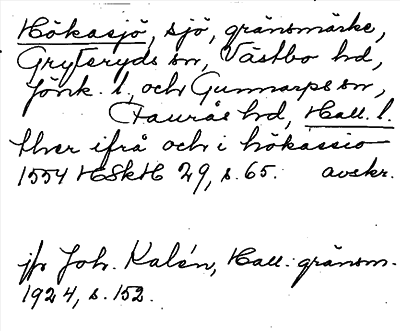 Hökasjö, sjö, gränsmärke,
Gryteryds sn, Västbo hd,
Jönk. l, och Gunnarps sn,
Faurås hd, Hall. l.
ther ifrå och i hökassio
1554 HSkH 29, s. 65. avskr.
jfr Joh. Kalén, Hall. gränsm.
1924, s. 152.